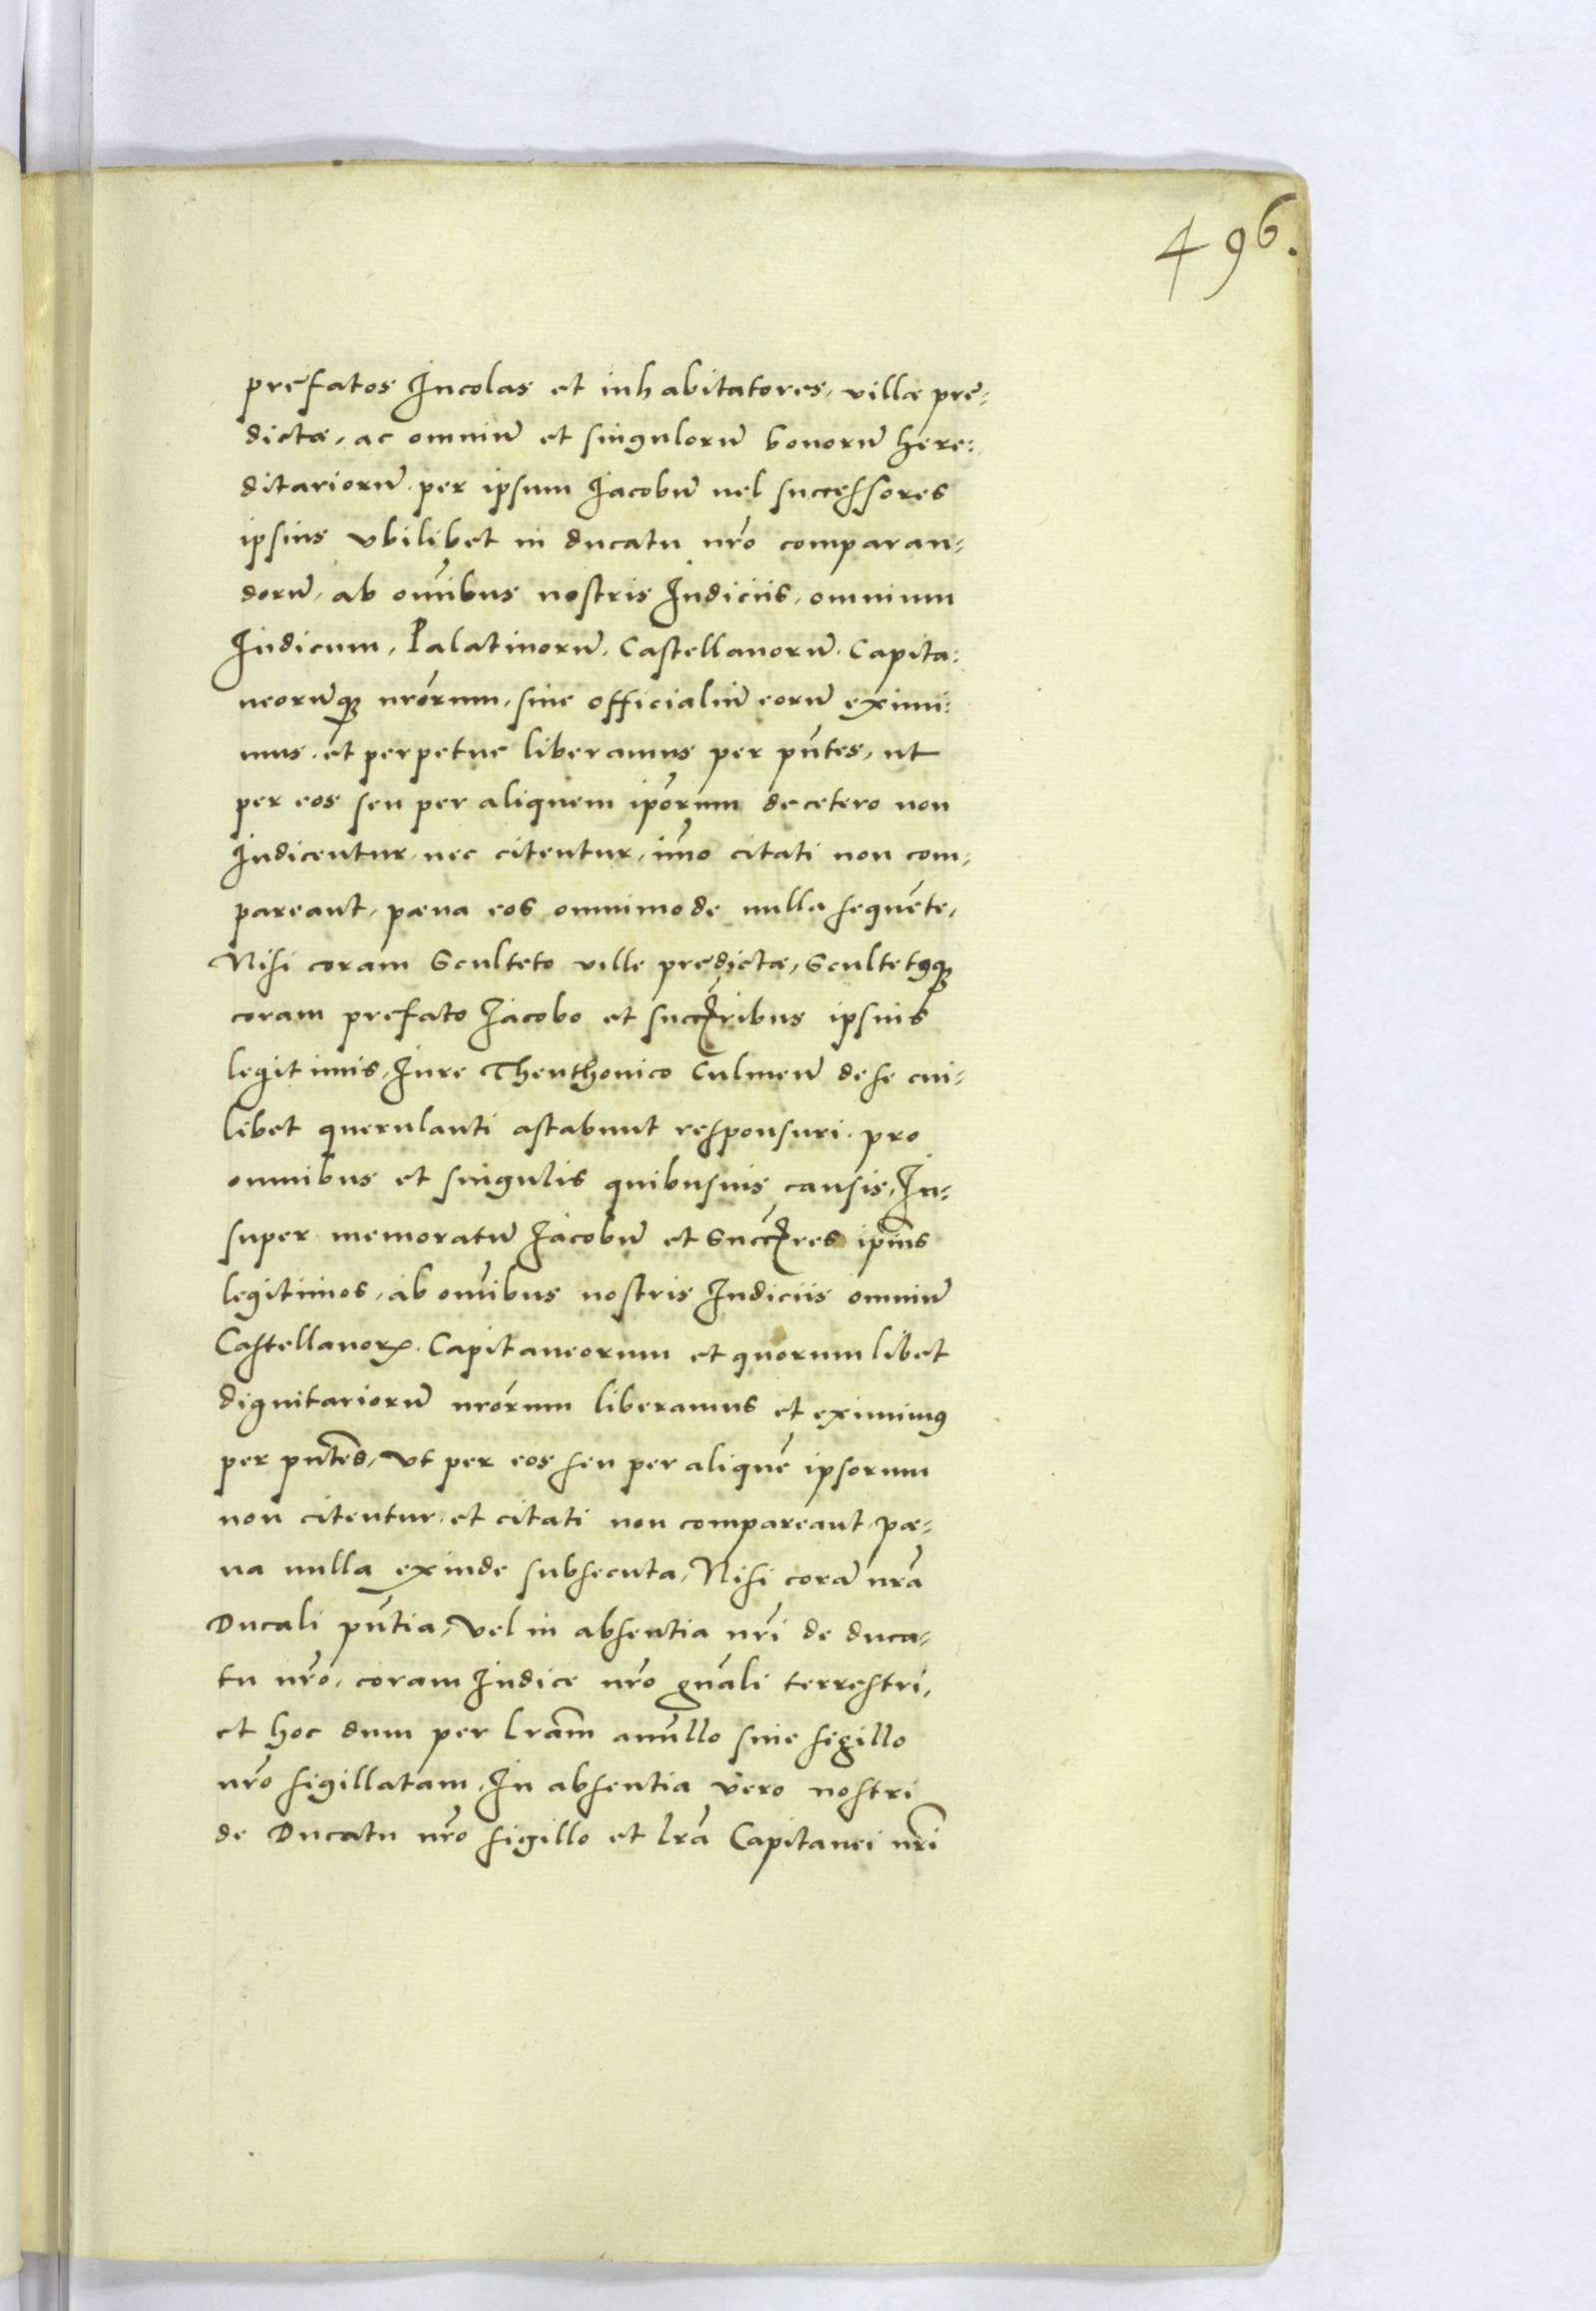 496.
prefatos Incolas et inhabitatores, villæ pre-
dictæ, ac omniū et singulorū bonorū here-
ditariorū per ipsum Jacobū vel successores
ipsius vbilibet in ducatu nr̃o comparan-
dorū, ab om̃ibus nostris Iudiciis, omnium
Iudicum, Palatinorū, Castellanorū, Capita-
neorūq; nr̃orum, siue officialiū eorū eximi-
mus, et perpetue liberamus per pn̄tes, ut
per eos seu per aliquem ip̃orum decetero non
Iudicentur, nec citentur, im̃o citati non com-
pareant, pæna eos omnimode nulla sequēte,
Nisi coram Sculteto ville predictæ, Scultetusq;
coram prefato Jacobo et succ̃ribus ipsius
legitimis, Iure Theuthonico Culmeñ de se cui-
libet querulanti astabunt responsuri, pro
omnibus et singulis quibusuis causis, In-
super memoratū Jacobū et Succ̃res ip̃ius
legitimos, ab om̃ibus nostris Iudiciis omniū
Castellanorꝝ, Capitaneorum et quorumlibet
dignitariorū nr̃orum liberamus et eximimus
per pn̄tes, vt per eos seu per aliquē ipsorum
non citentur, et citati non compareant, pæ-
na nulla exinde subsecuta, Nisi corā nr̃a
Ducali pn̄tia, Vel in absentia nr̃i de duca-
tu nr̃o, coram Iudice nr̃o gn̄ali terrestri,
et hoc dum per lr̃am anullo siue sigillo
nr̃o sigillatam, In absentia vero nostri
de Ducatu nr̃o sigillo et lr̃a Capitanei nr̃i